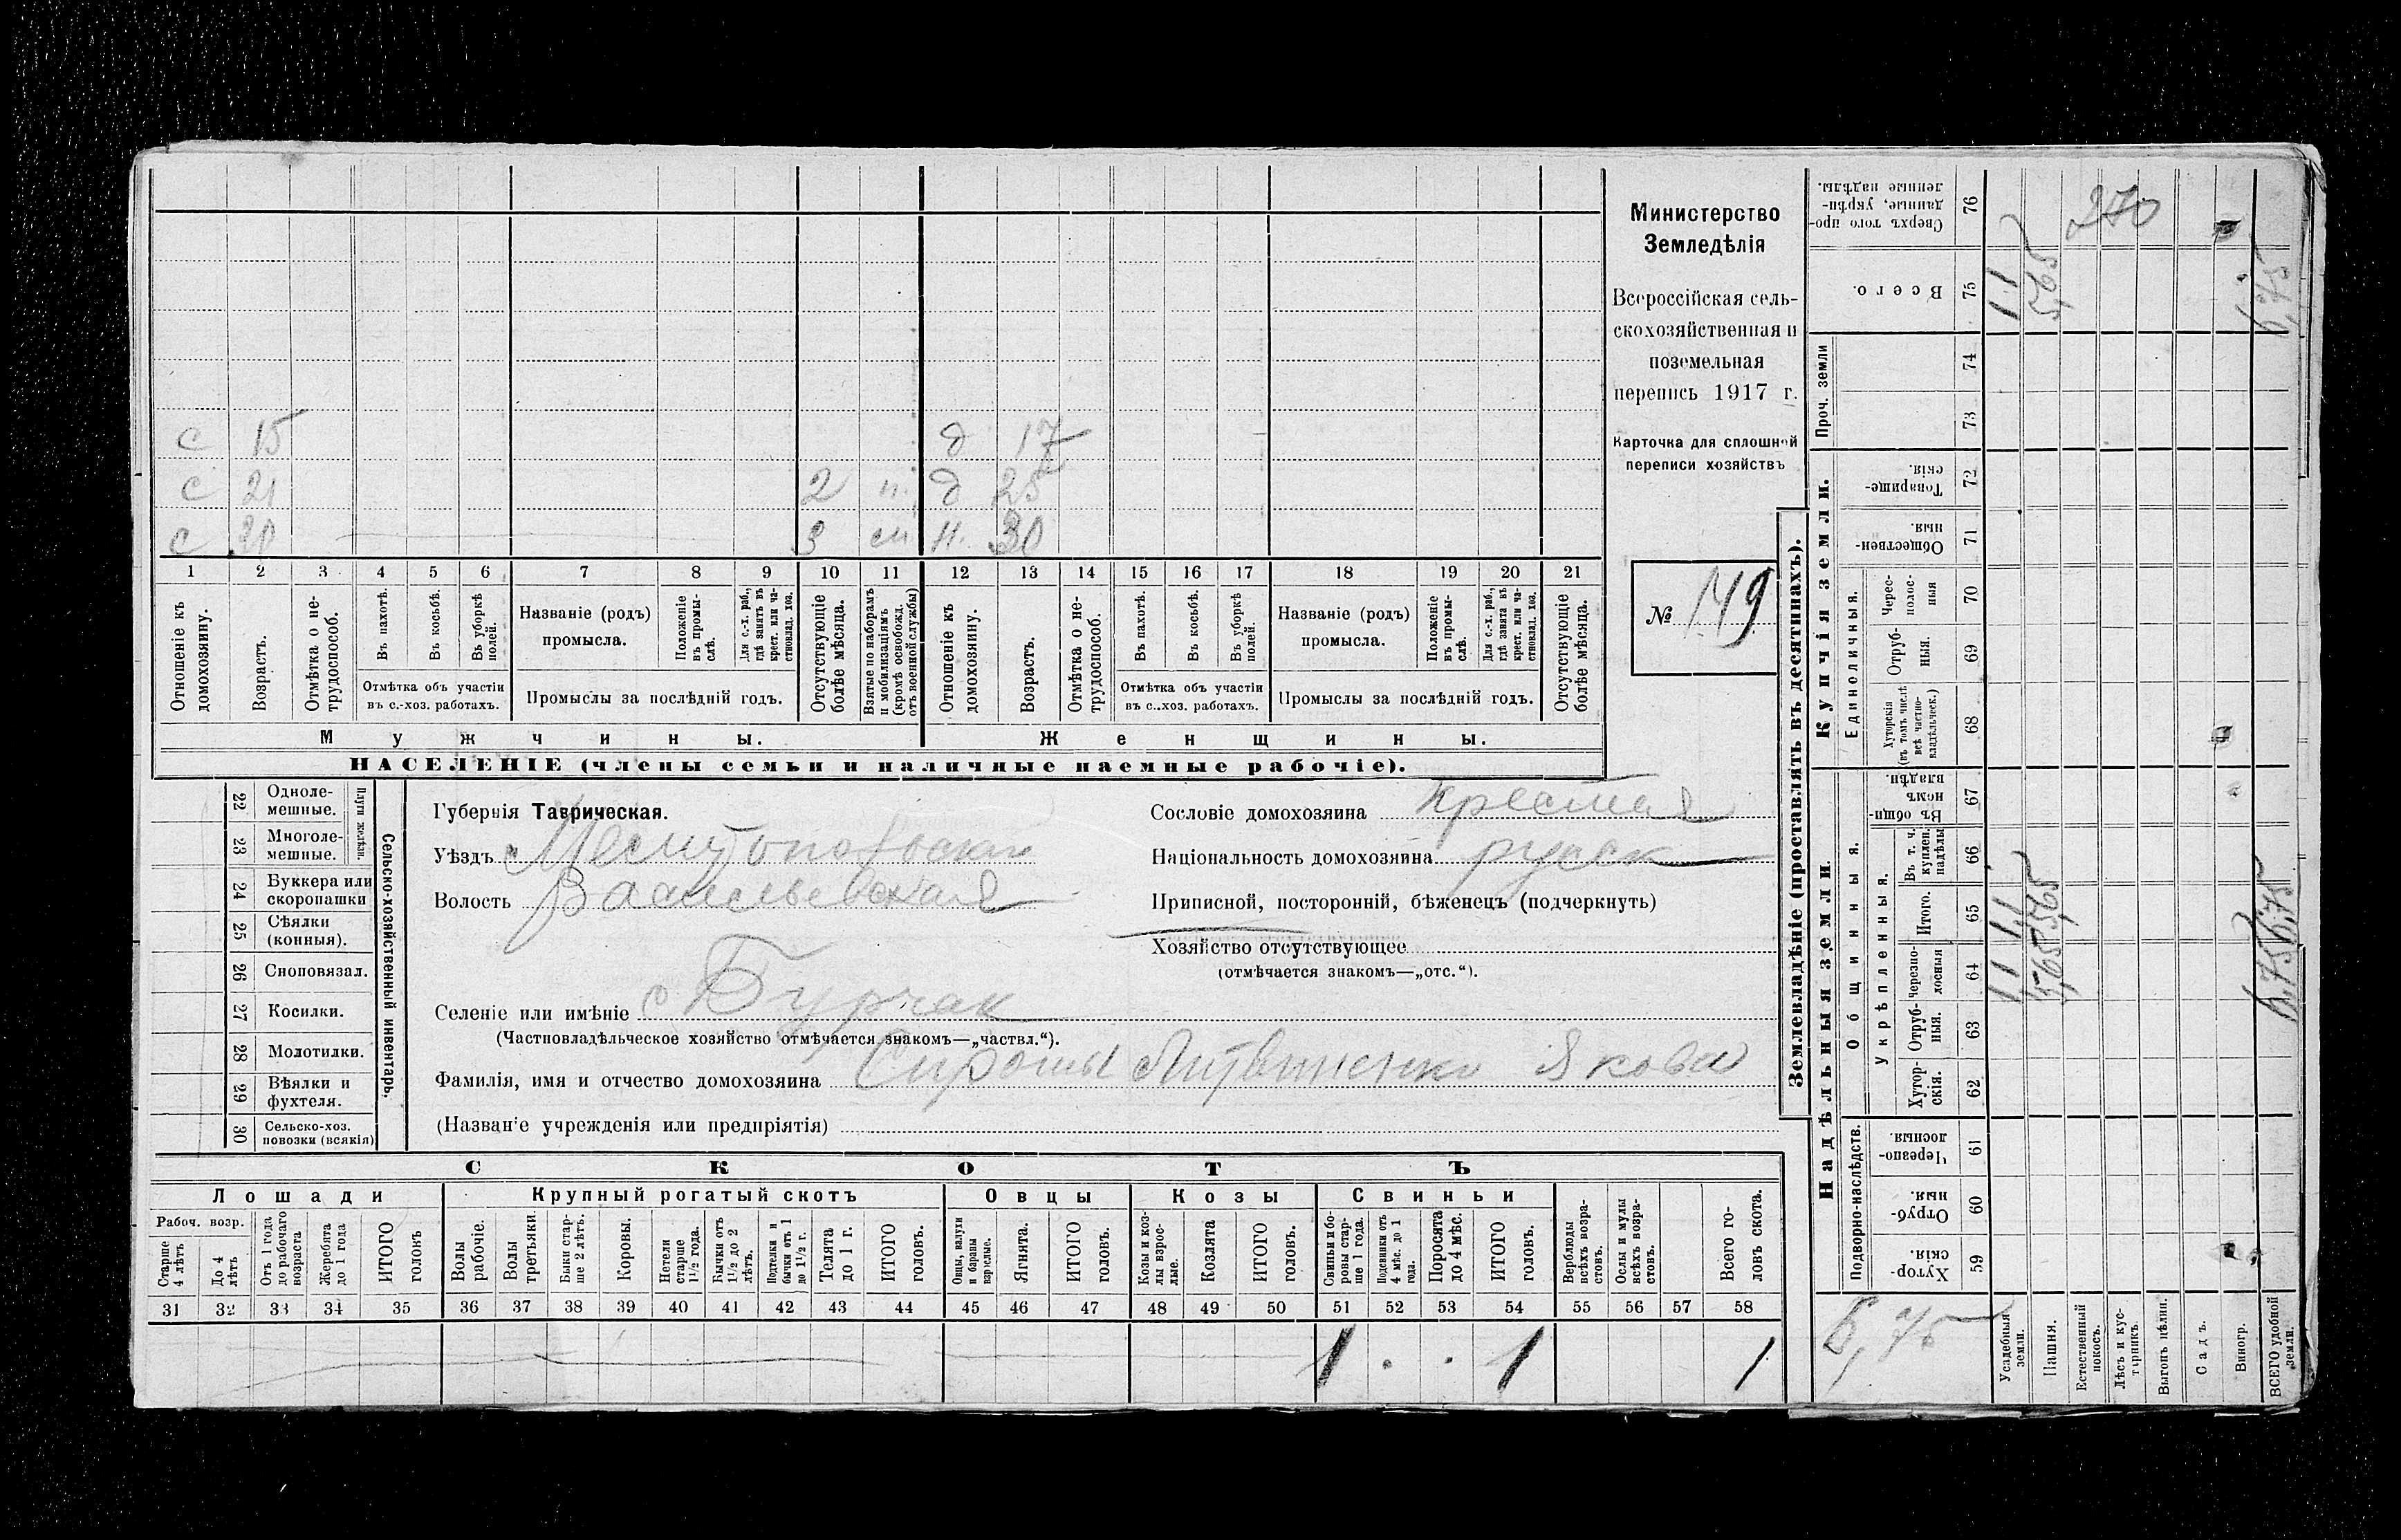 с 15 д 17
с 21 2 п. д 25
с 3 сп н. 30
1 2 3 4 5 6 7 8 9 10 11 12 13 14 15 16 17 18 19 20 21
Отношеніе къ домохозяину.
Возрастъ.
Отмѣтка о нетрудоспособ.
Въ пахотѣ.
Въ косьбѣ.
Въ уборкѣ полей.
Отмѣтка объ участіи
въ с.-хоз. работахъ.
Названіе (родъ)
промысла.
Положеніе въ промыслѣ.
Для с.-х. раб., гдѣ занятъ въ крест. или частновлад. хоз.
Промыслы за послѣдній годъ.
Отсутствующіе болѣе мѣсяца.
Взятые по наборамъ и мобилизаціямъ (кромѣ освобожд. отъ военной службы)
Отношеніе къ домохозяину.
Возрастъ.
Отмѣтка о нетрудоспособ.
Въ пахотѣ.
Въ косьбѣ.
Въ уборкѣ полей.
Отмѣтка объ участіи
въ с.-хоз. работахъ.
Названіе (родъ)
промысла.
Положеніе въ промыслѣ.
Для с.-х. раб., гдѣ занята въ крест. или частновлад. хоз.
Промыслы за послѣдній годъ.
Отсутствующіе болѣе мѣсяца.
Мужчины. Женщины.
НАСЕЛЕНІЕ (члены семьи и наличные наемные рабочіе).
Министерство
Земледѣлія
Всероссійская сель-
скохозяйственная и
поземельная
перепись 1917 г.
Карточка для сплошной
переписи хозяйствъ
№ 149
22 Одноле-
мешные.
23 Многоле-
мешные.
Плуги желѣзн.
24 Буккера или
скоропашки
25 Сѣялки
(конныя).
26 Сноповязал.
27 Косилки.
28 Молотилки.
29 Вѣялки и
фухтеля.
30 Сельско-хоз.
повозки (всякія)
Сельско-хозяйственный инвентарь.
Губернія Таврическая.
Уѣздъ Мелитопольскій
Волость Васильевская
Селеніе или имѣніе с Бурчак
(Частновладѣльческое хозяйство отмѣчается знакомъ—„частвл.“).
Фамилія, имя и отчество домохозяина Сироты Литвиненко Якова
(Названіе учрежденія или предпріятія)
Сословіе домохозяина
Національность домохозяина русск
Приписной, посторонній, бѣженецъ (подчеркнуть)
Хозяйство отсутствующее
(отмѣчается знакомъ—„отс.“).
СКОТЪ
Лошади Крупный рогатый скотъ Овцы Козы Свиньи
Рабоч. возр.
Старше 4 лѣтъ
До 4 лѣтъ
Отъ 1 года до рабочаго возраста
Жеребята до 1 года
ИТОГО головъ
Волы рабочіе.
Волы третьяки.
Быки старше 2 лѣтъ.
Коровы.
Нетели старше 1½ года.
Бычки отъ 1½ до 2 лѣтъ.
Подтелки и бычки отъ 1 до 1½ г.
Телята до 1 г.
ИТОГО головъ.
Овцы, валухи и бараны взрослые.
Ягнята.
ИТОГО головъ.
Козы и козлы взрослые.
Козлята
ИТОГО головъ.
Свиньи и боровы старше 1 года.
Подсвинки отъ 4 мѣс. до 1 года.
Поросята до 4 мѣс.
ИТОГО головъ.
Верблюды всѣхъ возрастовъ.
Ослы и мулы всѣхъ возрастовъ.
Всего головъ скота.
31 32 33 34 35 36 37 38 39 40 41 42 43 44 45 46 47 48 49 50 51 52 53 54 55 56 57 58
1 1 1
Землевладѣніе (проставлять въ десятинахъ).
Надѣльныя земли.
Купчія земли.
Проч. земли
Подворно-наслѣдств.
Общинныя.
Укрѣпленныя.
Единоличныя.
Хуторскія. 59
Отрубныя. 60
Черезполосныя. 61
Хуторскія. 62
Отрубныя. 63
Черезполосныя 64
Итого. 65
Въ т. ч. куплен. надѣлы 66
Въ общинномъ владѣн. 67
Хуторскія (въ томъ числѣ всѣ частновладѣльческ.) 68
Отрубныя. 69
Чересполосныя 70
Общественныя. 71
Товарищескія. 72
73
74
Всего. 75
Сверхъ того проданные, укрѣпленные надѣлы. 76
Усадебныя земли. 1,1 1,1 1,1
Пашня. 5,65 5,65 5,65
Естественный покосъ.
Лѣсъ и кустарникъ.
Выгонъ цѣлин.
Садъ.
Виногр.
ВСЕГО удобной земли. 6,75 6,75 6,75
6,75